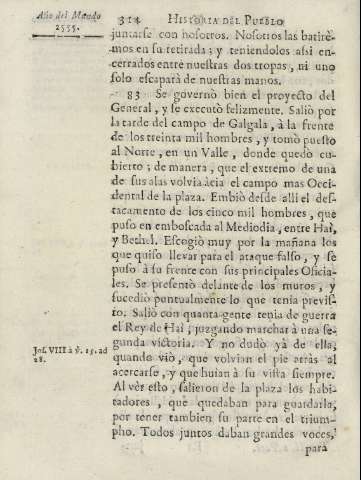 Año del Mundo
2555.
314 HISTORIA DEL PUEBLO
juntarse con nosotros. Nosotros las batirè-
mos en su retirada; y teniendolos asi en-
cerrados entre nuestras dos tropas, ni uno
solo escaparà de nuestras manos.
83 Se governò bien el proyecto del
General, y se executò felizmente. Saliò por
la tarde del campo de Galgala, à la frente
de los treinta mil hombres, y tomò puesto
al Norte, en un Valle, donde quedò cu-
bierto; de manera, que el extremo de una
de sus alas volvia àcia el campo mas Occi-
dental de la plaza. Embiò desde alli el des-
tacamento de los cinco mil hombres, que
puso en emboscada al Mediodia, entre Hai,
y Bethel. Escogiò muy por la mañana los
que quiso llevar para el ataque falso, y se
puso à su frente con sus principales Oficia-
les. Se presentò delante de los muros, y
sucediò puntualmente lo que tenia previs-
to. Saliò con quanta gente tenia de guerra
el Rey de Hai, juzgando marchar à una se-
gunda victoria. Y no dudò yà de ella,
Jos. VIII à ỳ. 15. ad
28.
quando viò, que volvian el pie atràs al
acercarse, y que huian à su vista siempre.
Al vèr esto, salieron de la plaza los habi-
tadores, que quedaban para guardarla,
por tener tambien su parte en el trium-
pho. Todos juntos daban grandes voces,
parà